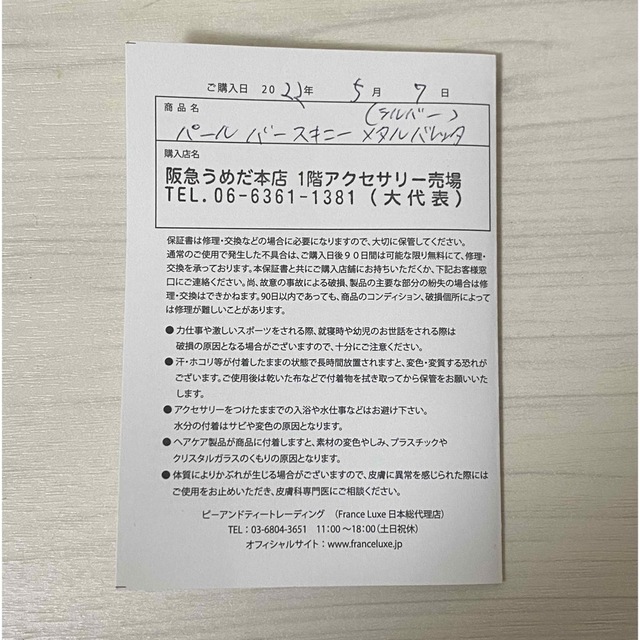 ご購入日 2022年 5月 7日
商品名 (シルバー)
パール バースキニー メタルバレッタ
購入店名
阪急うめだ本店 1階アクセサリー売場
TEL.06-6361-1381(大代表)
保証書は修理・交換などの場合に必要になりますので、大切に保管してください。
通常のご使用で発生した不具合は、ご購入日後90日間は可能な限り無料にて、修理・
交換を承っております。本保証書と共にご購入店舗にお持ちいただくか、下記お客様窓
口にご連絡ください。尚、故意の事故による破損、製品の主要な部分の紛失の場合は修
理・交換はできかねます。90日以内であっても、商品のコンディション、破損個所によって
は修理が難しいことがあります。
●力仕事や激しいスポーツをされる際、就寝時や幼児のお世話をされる際は
破損の原因となる場合がございますので、十分にご注意ください。
●汗・ホコリ等が付着したままの状態で長時間放置されますと、変色・変質する恐れが
ございます。ご使用後は乾いた布などで付着物を拭き取ってから保管をお願いいた
します。
●アクセサリーをつけたままでの入浴や水仕事などはお避け下さい。
水分の付着はサビや変色の原因となります。
●ヘアケア製品が商品に付着しますと、素材の変色やしみ、プラスチックや
クリスタルガラスのくもりの原因となります。
●体質によりかぶれが生じる場合がございますので、皮膚に異常を感じられた際には
ご使用をお止めいただき、皮膚科専門医にご相談ください。
ピーアンドティートレーディング (France Luxe 日本総代理店)
TEL:03-6804-3651 11:00〜18:00(土日祝休)
オフィシャルサイト:www.franceluxe.jp